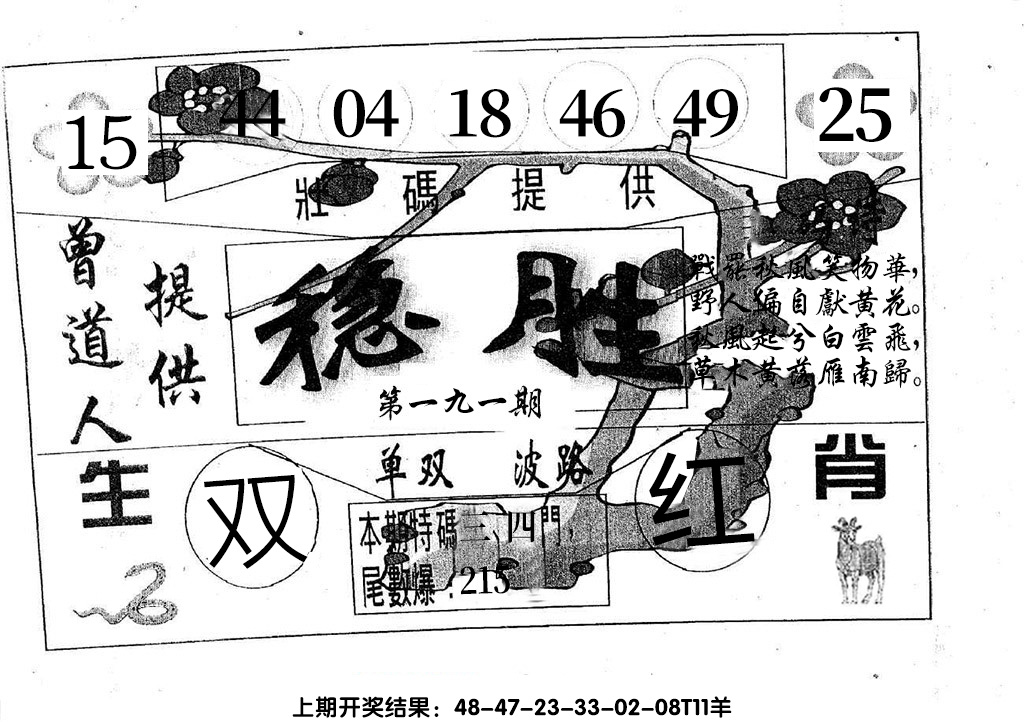 15 44 04 18 46 49 25
壯碼提供
曾道人
提供
特
稳胜
第一九一期
戰罷秋風笑物華,
野人偏自獻黄花。
秋風起兮白雲飛,
草木黄落雁南歸。
单双 波路
生肖
双 红
本期特碼三、四門,
尾數爆:215
上期开奖结果:48-47-23-33-02-08T11羊